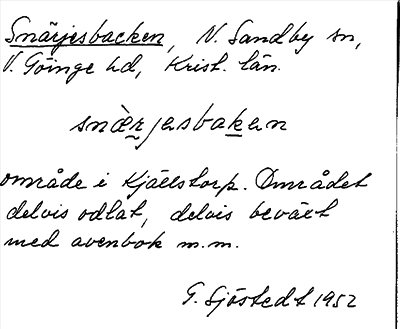 Snärjesbacken, N. Sandby sn,
V. Göinge hd, Krist. län.
snæ̀rjesbaken
område i Kjällstorp. Området
delvis odlat, delvis beväxt
med avenbok m.m.
G. Sjöstedt 1952